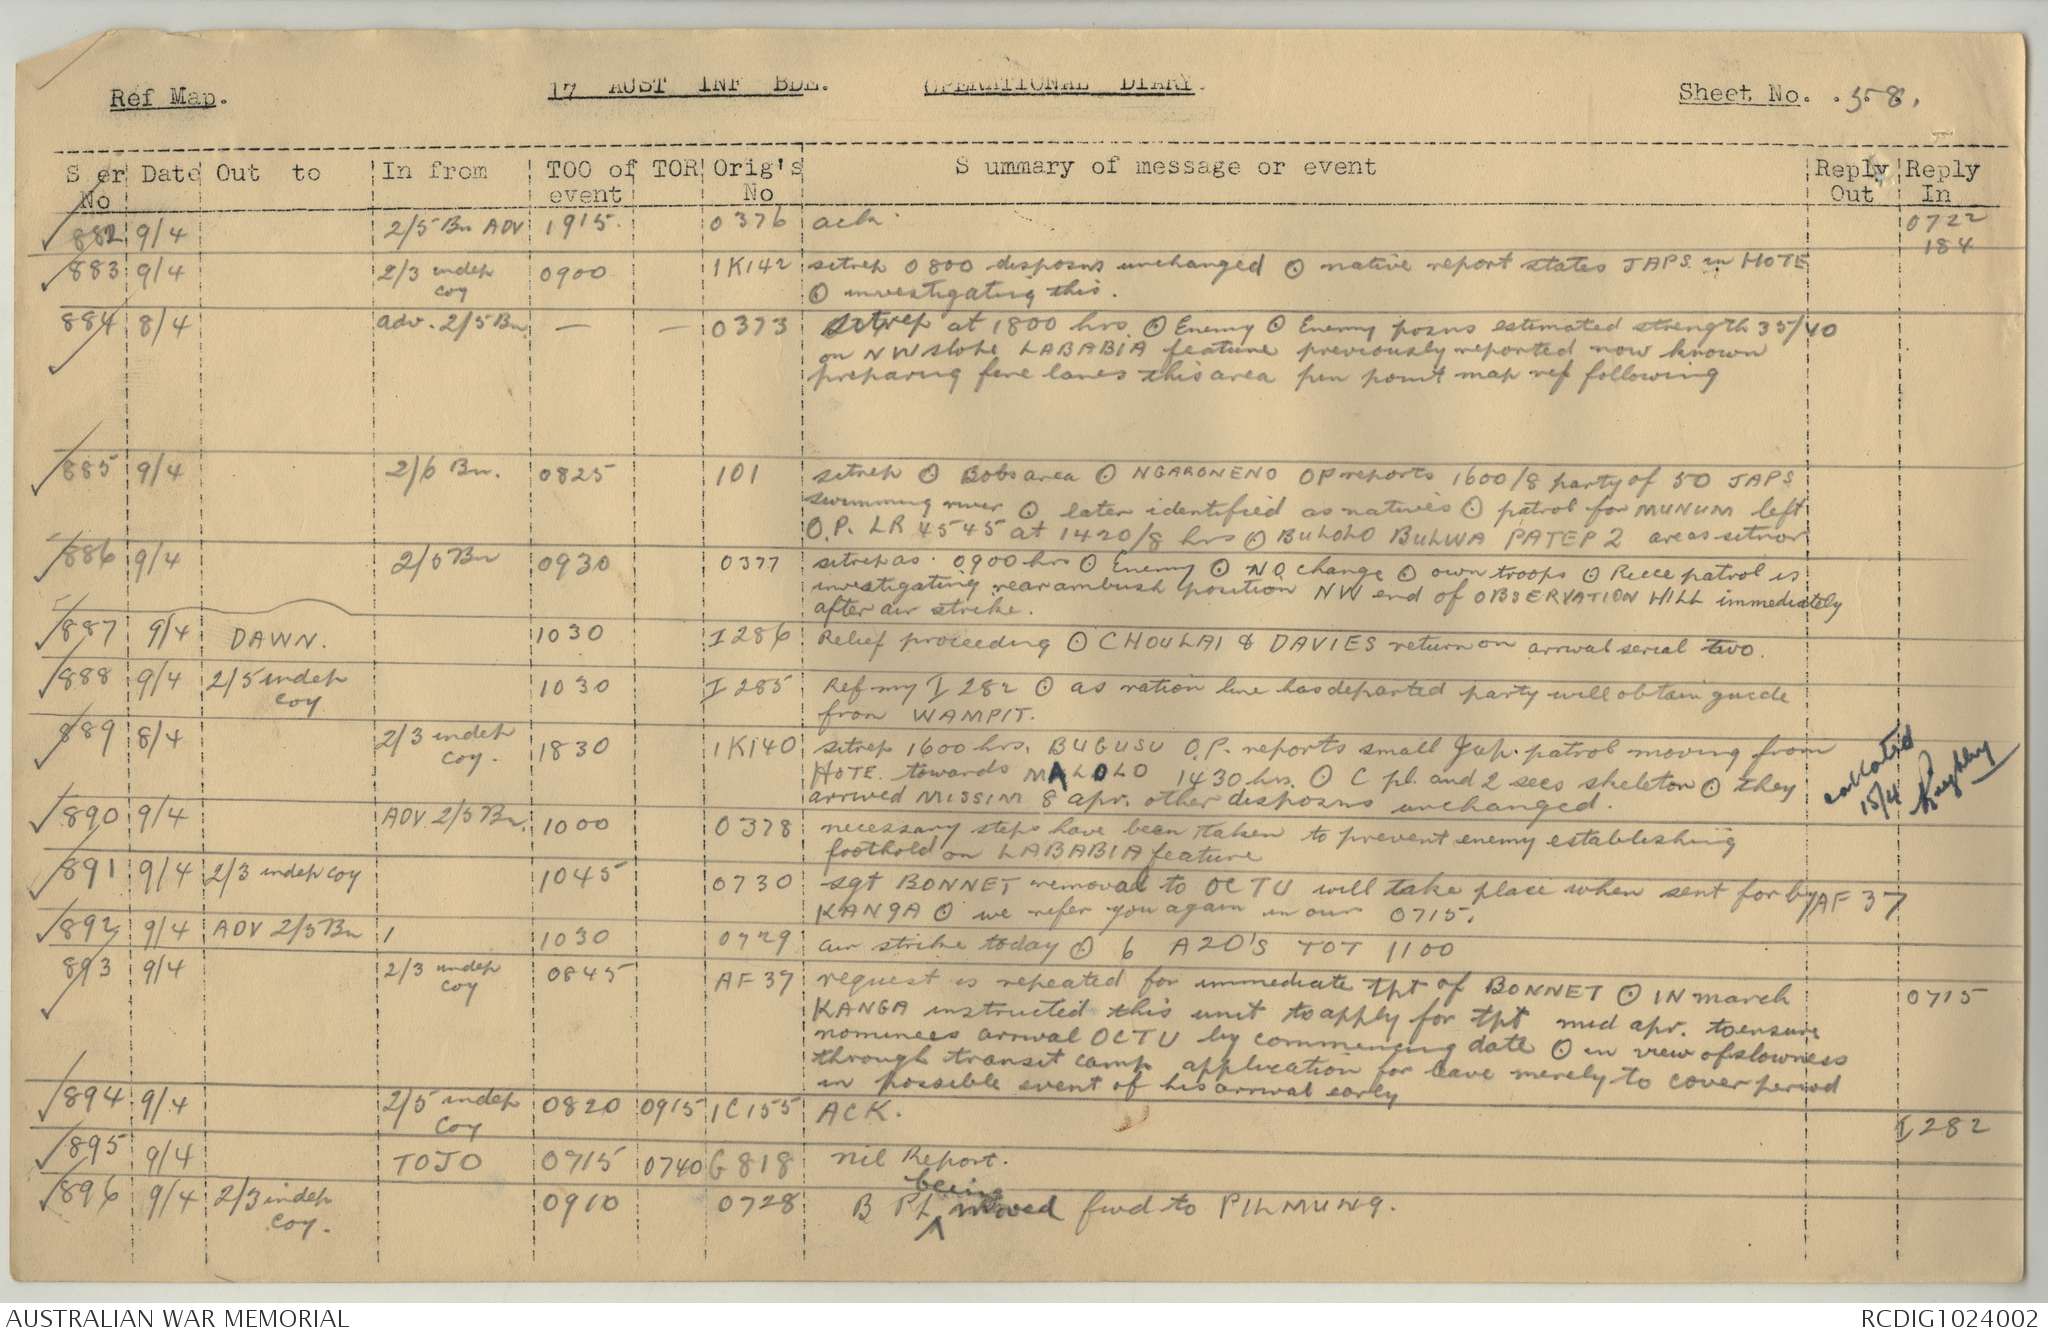 Ref Map. 17 AUST INF BDE. OPERATIONAL DIARY. Sheet No. . 58.
Ser No Date Out to In from TOO of event TOR Orig's No Summary of message or event Reply Out Reply In
882 9/4 2/5 Bn ADV 1915. 0376 ack. 0722
184
883 9/4 2/3 indep coy 0900 IK142 sitrep 0800 disposns unchanged ⊙ native report states JAPS in HOTE
⊙ investigating this.
884 8/4 adv. 2/5 Bn — — 0373 sitrep at 1800 hrs ⊙ Enemy ⊙ Enemy posns estimated strength 35/40
on NW slope LABABIA feature previously reported now known
preparing fire lanes this area pin point map ref following
885 9/4 2/6 Bn. 0825 101 sitrep ⊙ Bobs area ⊙ NGARONENO OP reports 1600/8 party of 50 JAPS
swimming river ⊙ later identified as natives ⊙ patrol for MUNUM left
O.P. LR 4545 at 1420/8 hrs ⊙ BULOLO BULWA PATEP 2 areas sitnor
886 9/4 2/5 Bn 0930 0377 sitrep as. 0900 hrs ⊙ Enemy ⊙ NO change ⊙ own troops ⊙ Recce patrol is
investigating rear ambush position NW end of OBSERVATION HILL immediately
after air strike.
887 9/4 DAWN. 1030 I 286 Relief proceeding ⊙ CHOULAI & DAVIES return on arrival serial two.
888 9/4 2/5 indep coy 1030 I 285 Ref my I 282 ⊙ as ration line has departed party will obtain guide
from WAMPIT.
889 8/4 2/3 indep coy. 1830 IK140 sitrep 1600 hrs. BUGUSU O.P. reports small Jap. patrol moving from
HOTE. towards MALOLO 1430 hrs. ⊙ C pl. and 2 secs skeleton ⊙ they
arrived MISSIM 8 apr. other disposns unchanged.
collated
15/4
890 9/4 ADV 2/5 Bn. 1000 0378 necessary steps have been taken to prevent enemy establishing
foothold on LABABIA feature
891 9/4 2/3 indep coy 1045 0730 sgt BONNET removal to OCTU will take place when sent for by AF 37
KANGA ⊙ we refer you again in our 0715.
892 9/4 ADV 2/5 Bn 1 1030 0729 air strike today ⊙ 6 A20'S TOT 1100
893 9/4 2/3 indep coy 0845 AF 37 request is repeated for immediate tpt of BONNET ⊙ IN march 0715
KANGA instructed this unit to apply for tpt mid apr. to ensure
nominees arrival OCTU by commencing date ⊙ in view of slowness
through transit camp application for leave merely to cover period
in possible event of his arrival early
894 9/4 2/5 indep coy 0820 0915 IC155 ACK. I 282
895 9/4 TOJO 0715 0740 G 818 nil Report.
896 9/4 2/3 indep coy. 0910 0728 B PL being moved fwd to PILMUNG.
AUSTRALIAN WAR MEMORIAL RCDIG1024002